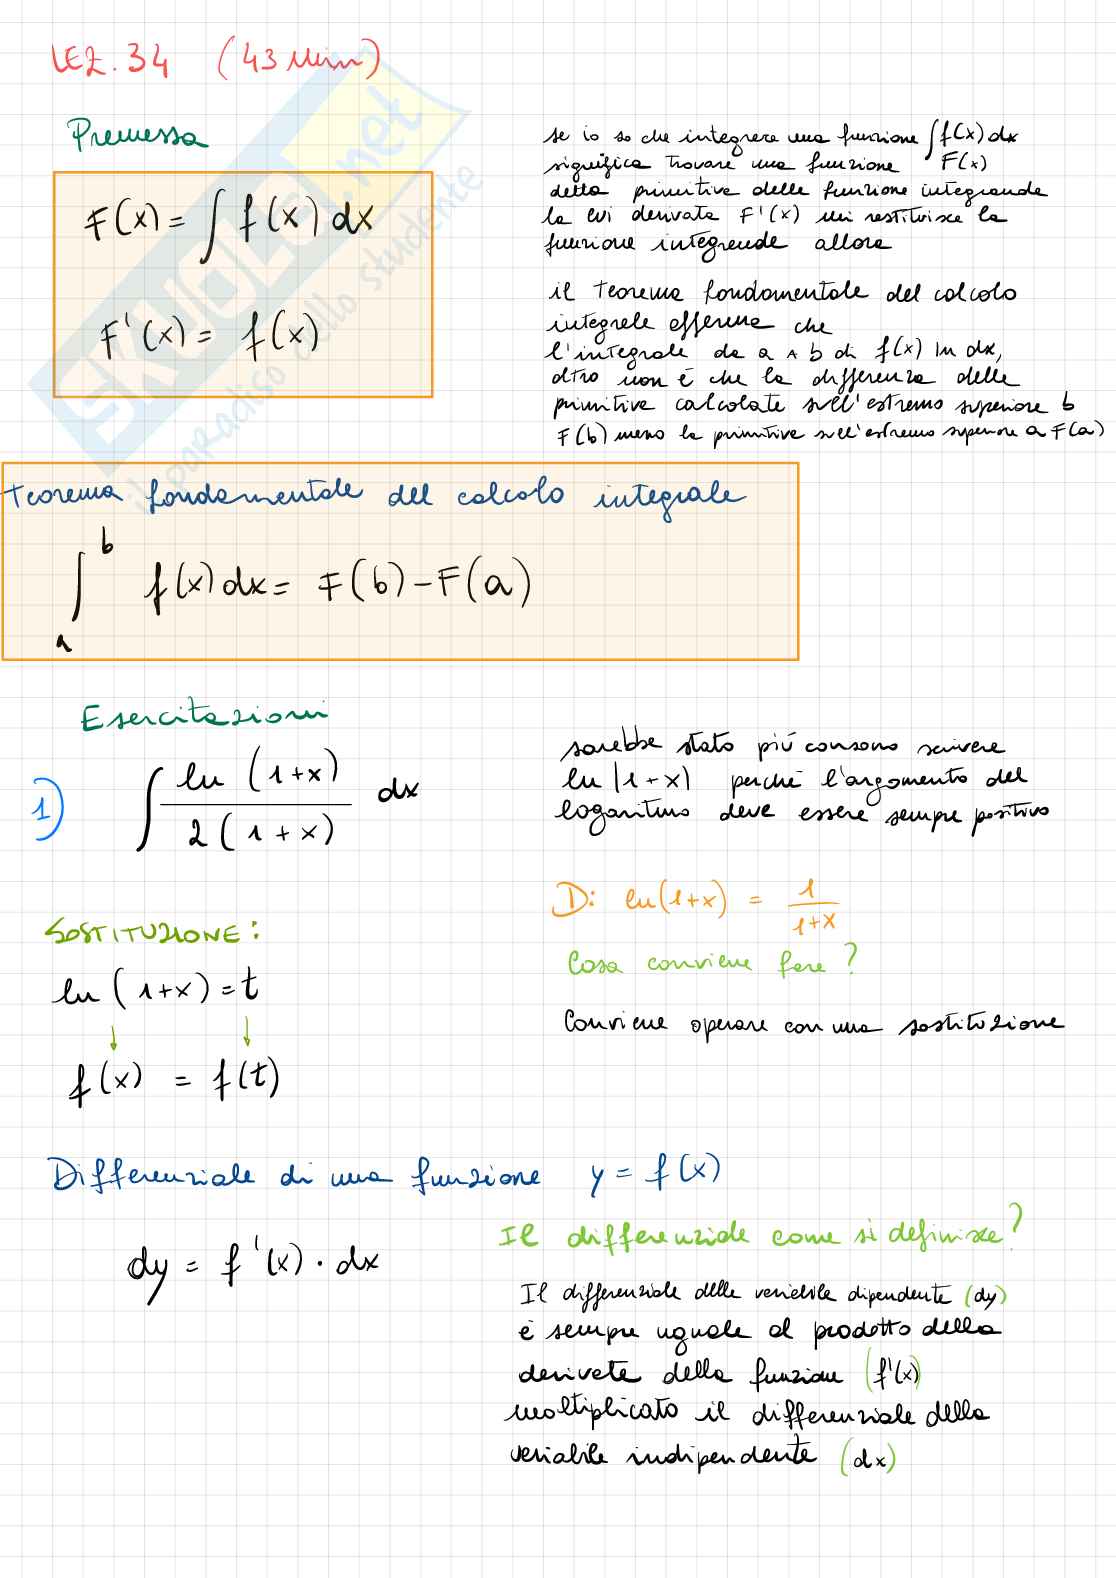 LEZ. 34 (43 Min)
Premessa
F(x) = ∫ f(x) dx
F'(x) = f(x)
se io so che integrere una funzione ∫f(x) dx
significa trovare una funzione F(x)
detta primitive delle funzione integranda
la cui derivata F'(x) mi restituisce la
funzione integrende allora
il Teorema fondamentale del calcolo
integrele afferma che
l'integrale da a A b di f(x) In dx,
altro non è che la differenza delle
primitive calcolate sull'estremo superiore b
F(b) meno la primitive sull'estremo superiore a F(a)
Teorema fondamentale del calcolo integrale
∫ₐᵇ f(x) dx = F(b) - F(a)
Esercitazioni
1) ∫ ln (1+x) / 2(1+x) dx
sarebbe stato più consono scrivere
ln |1+x) perché l'argomento del
logaritmo deve essere sempre positivo
D: ln(1+x) = 1/(1+x)
Cosa conviene fare?
Conviene operare con una sostituzione
SOSTITUZIONE:
ln (1+x) = t
↓ ↓
f(x) = f(t)
Differenziale di una funzione y = f(x)
dy = f'(x) · dx
Il differenziale come si definisce?
Il differenziale delle veriebile dipendente (dy)
è sempre uguale al prodotto della
derivete della funzione (f'(x)
moltiplicato il differenziale della
veriabile indipendente (dx)
SKUOLA.net
il paradiso dello studente